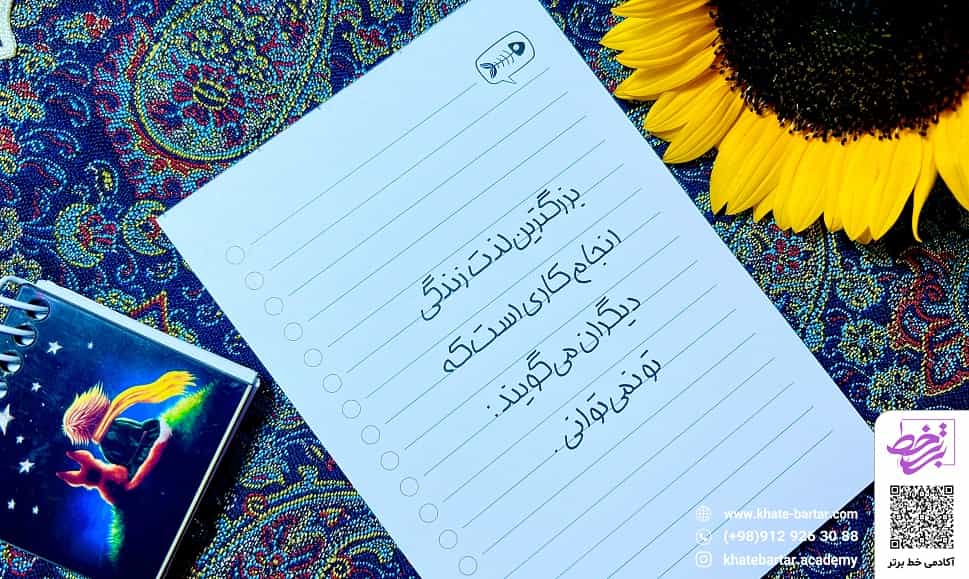 بزرگترین لذت زندگی
انجام کاری است که
دیگران می‌گویند:
تو نمی‌توانی.
www.khate-bartar.com
(+98)912 926 30 88
khatebartar.academy
خط برتر
آکادمی خط برتر